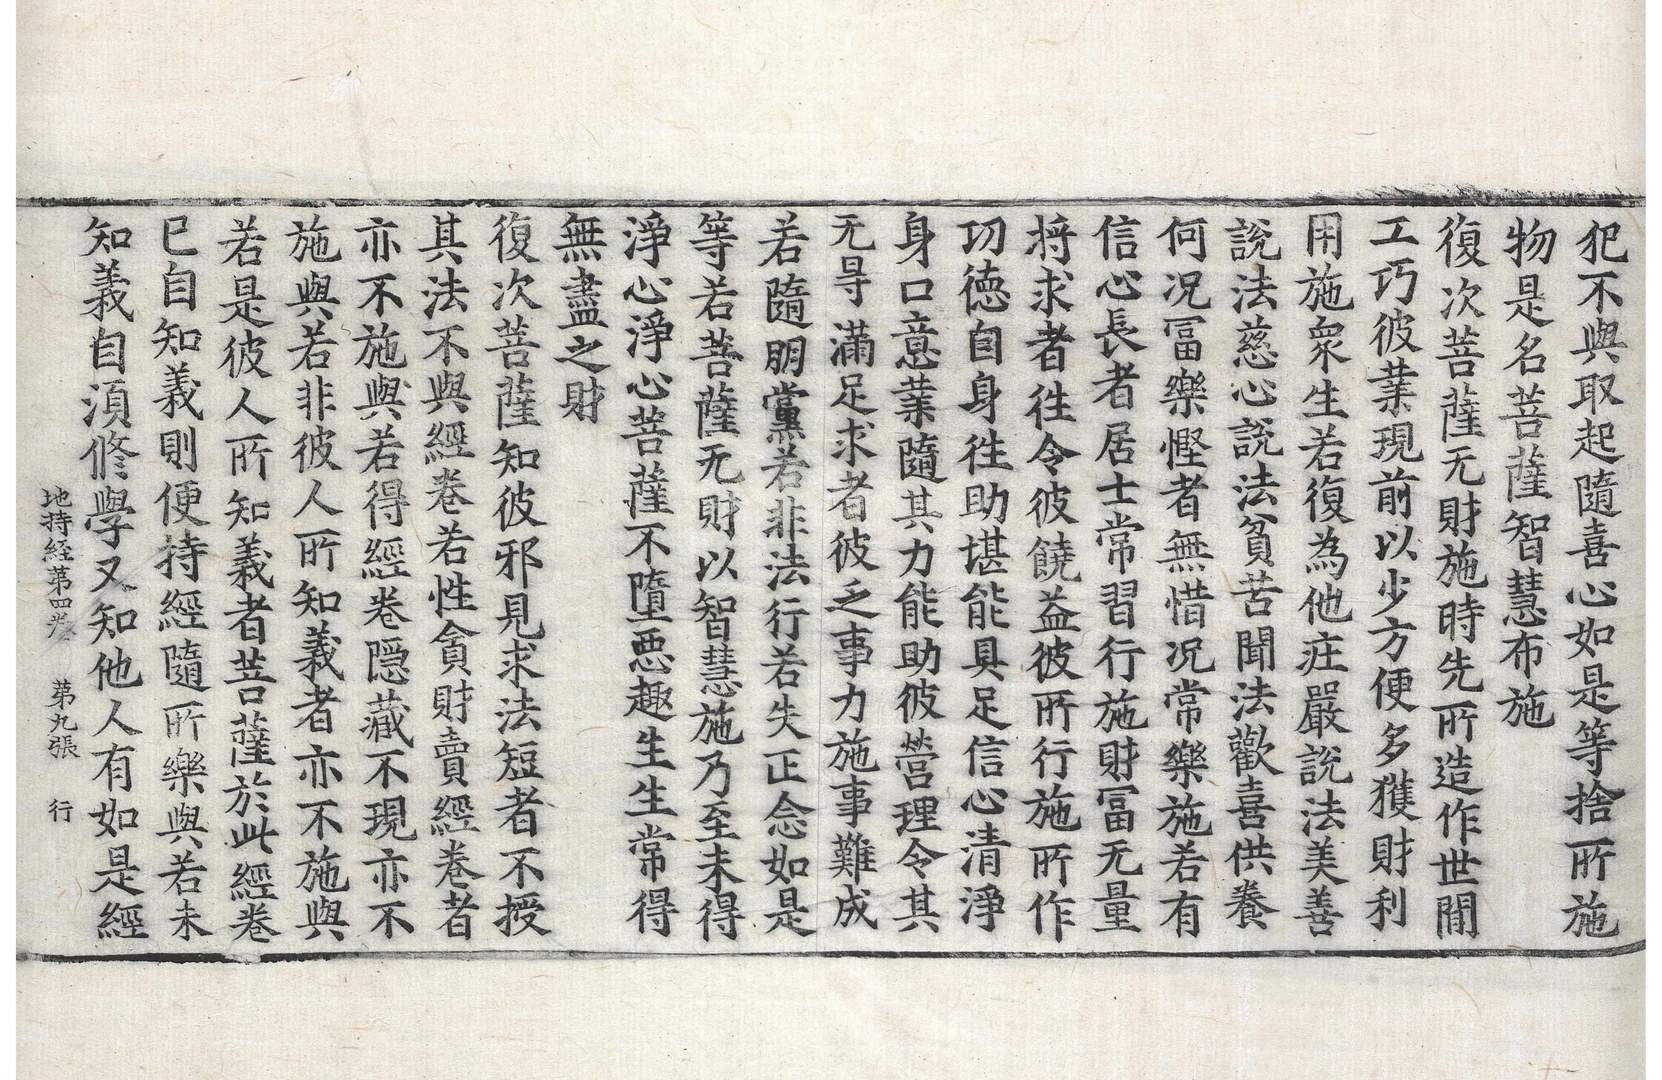 犯不與取起隨喜心如是等捨所施
物是名菩薩智慧布施
復次菩薩无財施時先所造作世間
工巧彼業現前以少方便多獲財利
用施衆生若復為他莊嚴說法美善
說法慈心說法貧苦聞法歡喜供養
何况冨樂慳者無惜况常樂施若有
信心長者居士常習行施財冨无量
将求者往令彼饒益彼所行施所作
功德自身往助堪能具足信心清淨
身口意業隨其力能助彼營理令其
无㝵滿足求者彼乏事力施事難成
若隨朋黨若非法行若失正念如是
等若菩薩无財以智慧施乃至未得
淨心淨心菩薩不墮惡趣生生常得
無盡之財
復次菩薩知彼邪見求法短者不授
其法不與經卷若性貪財賣經卷者
亦不施與若得經卷隱藏不現亦不
施與若非彼人所知義者亦不施與
若是彼人所知義者菩薩於此經卷
已自知義則便持經隨所樂與若未
知義自須修學又知他人有如是經
地持經第四卷 第九張 行